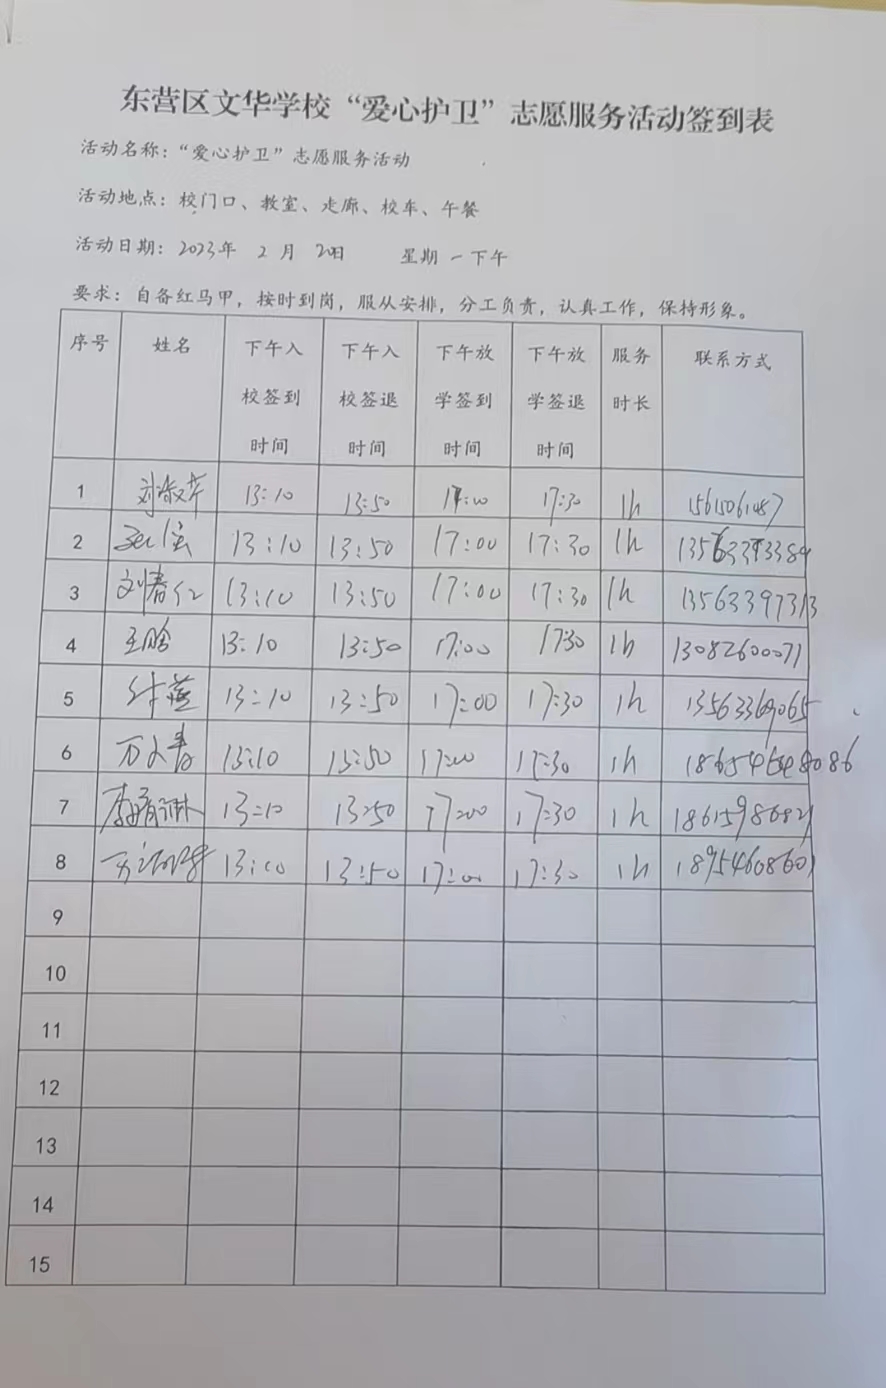 东营区文华学校“爱心护卫”志愿服务活动签到表
活动名称：“爱心护卫”志愿服务活动
活动地点：校门口、教室、走廊、校车、午餐
活动日期：2023年 2 月 20日 星期 一 下午
要求：自备红马甲，按时到岗，服从安排，分工负责，认真工作，保持形象。
序号 姓名 下午入校签到时间 下午入校签退时间 下午放学签到时间 下午放学签退时间 服务时长 联系方式
1 刘淑芹 13:10 13:50 17:00 17:30 1h
2 13:10 13:50 17:00 17:30 1h
3 刘春仁 13:10 13:50 17:00 17:30 1h 13563397313
4 王晗 13:10 13:50 17:00 1730 1h 13082600071
5 13:10 13:50 17:00 17:30 1h 13563369065
6 万文春 13:10 13:50 17:00 17:30 1h
7 13:10 13:50 17:00 17:30 1h
8 13:10 13:50 17:00 17:30 1h 18954608601
9
10
11
12
13
14
15